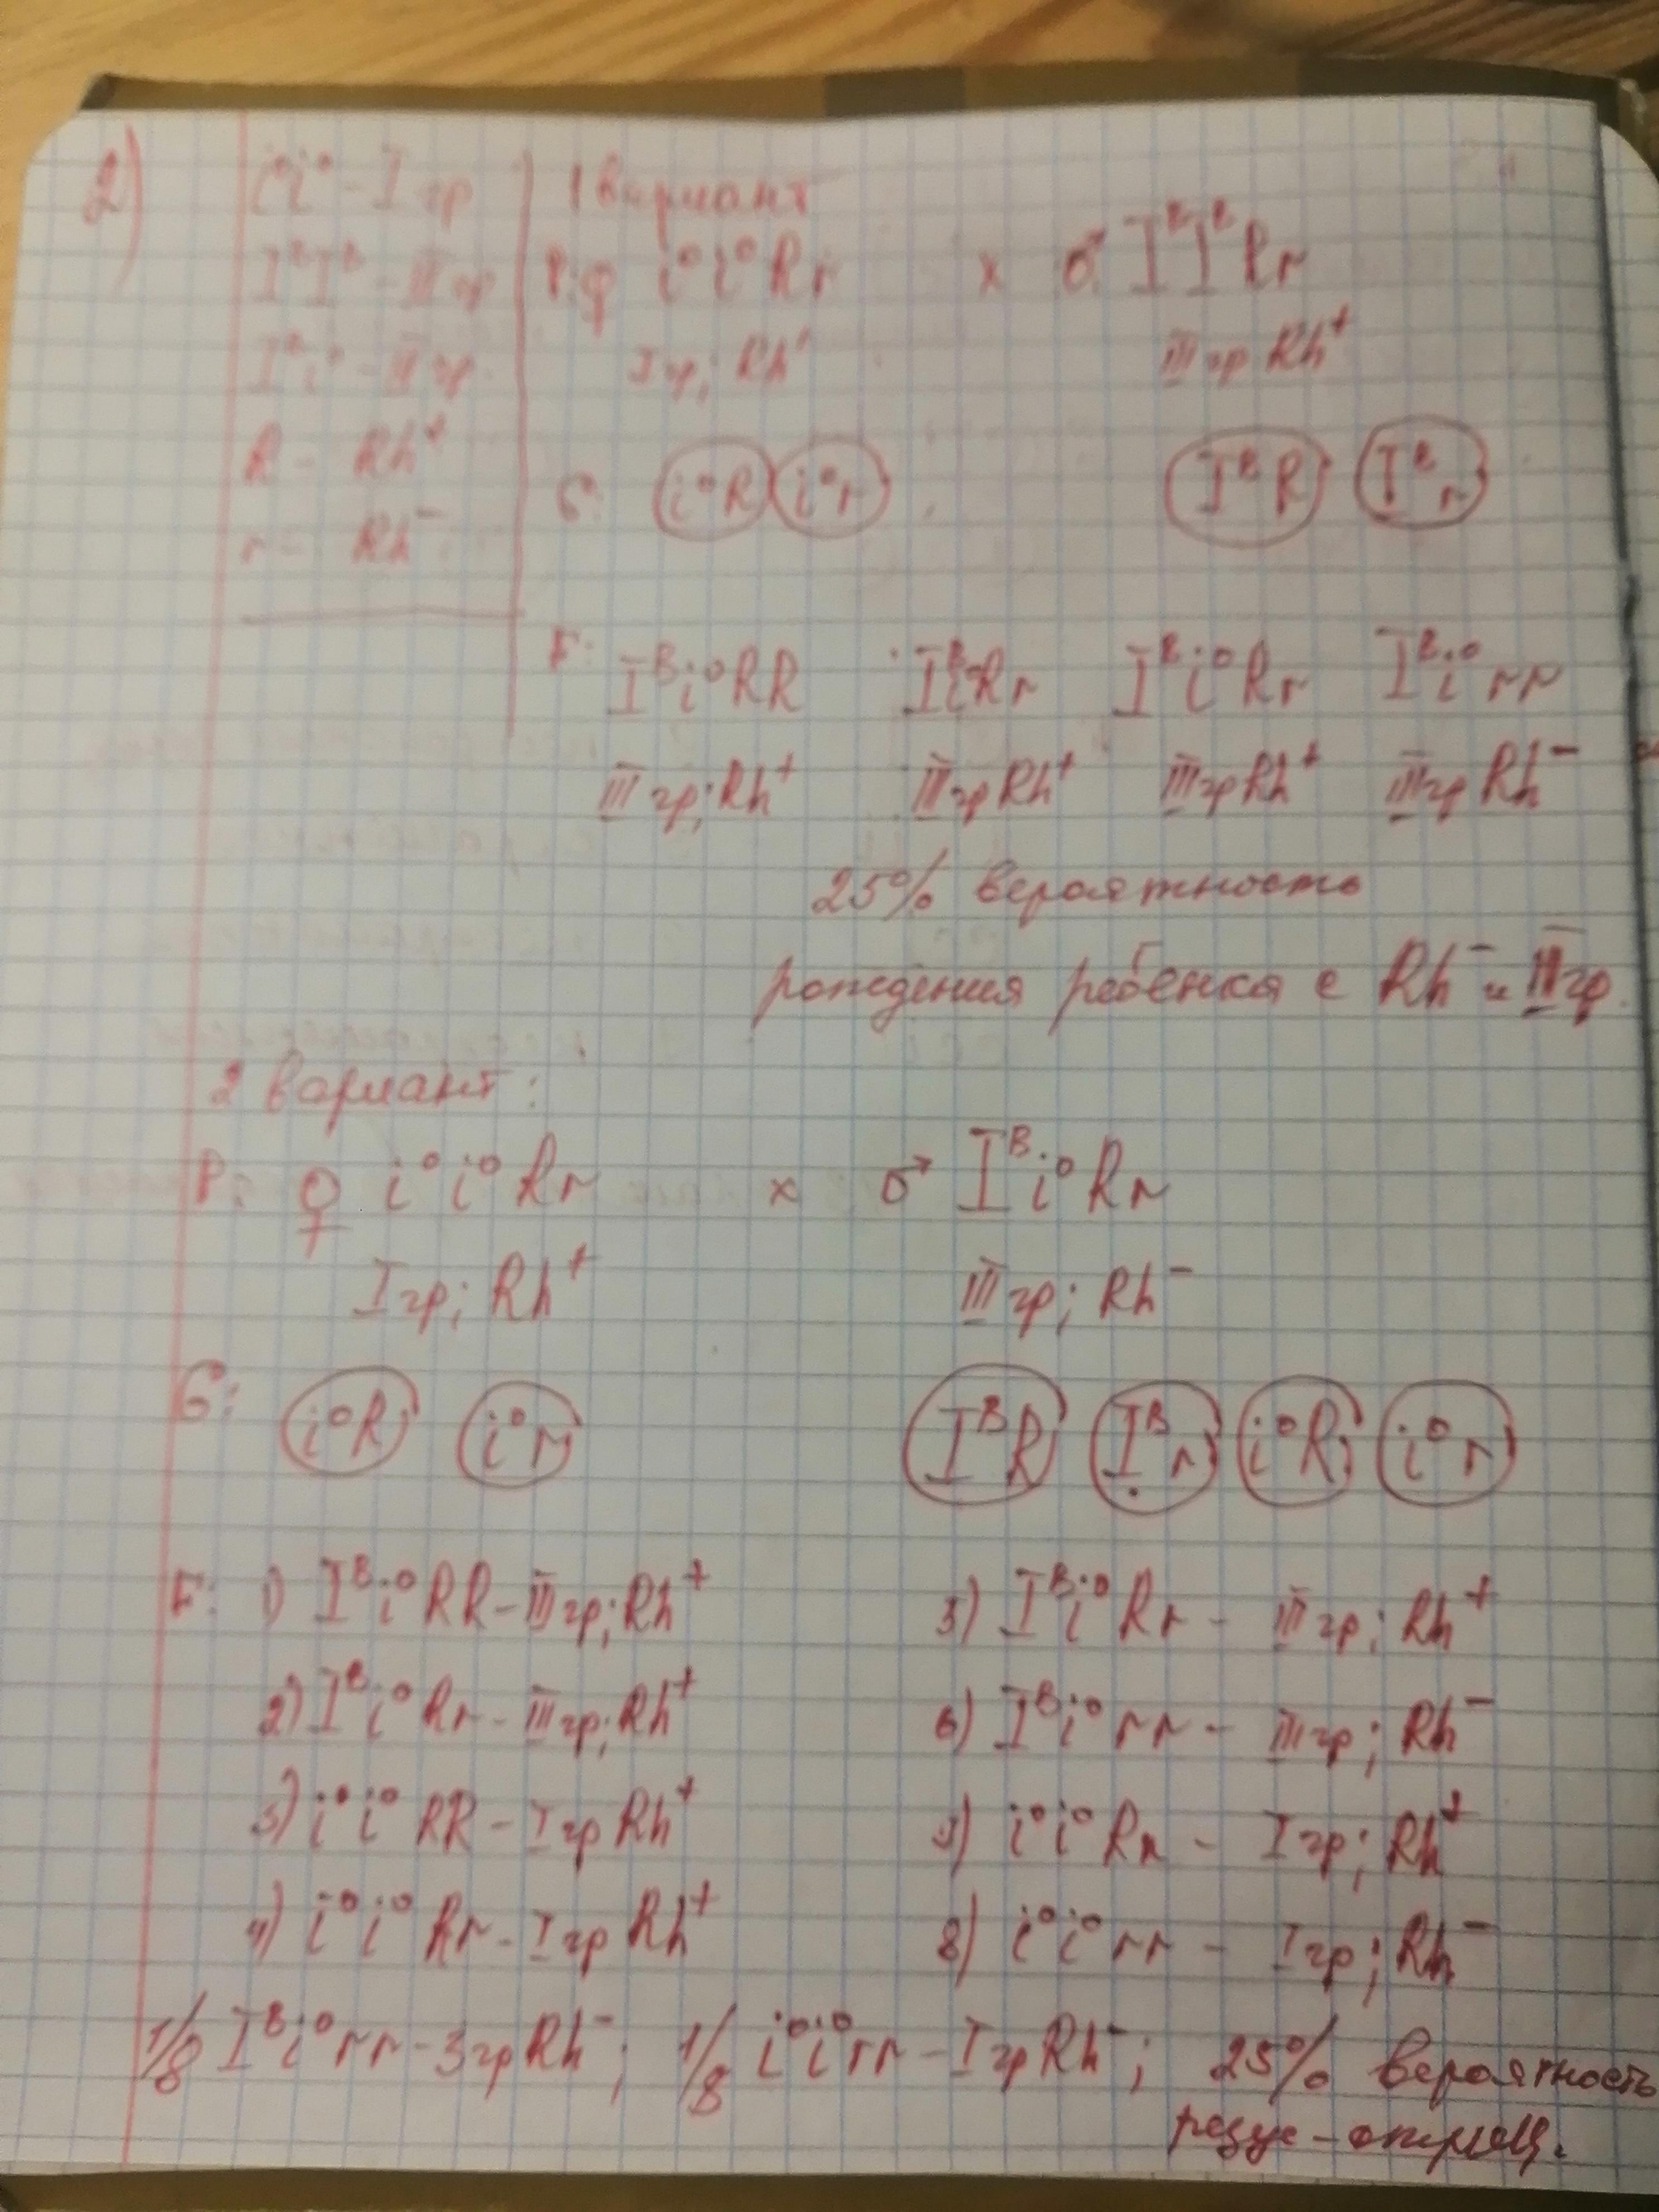 2)
i⁰i⁰ - I гр
IᴮIᴮ - III гр
Iᴮi⁰ - III гр
R - Rh⁺
r - Rh⁻
1 вариант
P: ♀ i⁰i⁰Rr x ♂ IᴮIᴮRr
I гр; Rh⁺ III гр Rh⁺
G: i⁰R i⁰r IᴮR Iᴮr
F: Iᴮi⁰RR Iᴮi⁰Rr Iᴮi⁰Rr Iᴮi⁰rr
III гр; Rh⁺ III гр Rh⁺ III гр Rh⁺ III гр Rh⁻
25% вероятность
рождения ребенка с Rh⁻ и III гр.
2 вариант:
P: ♀ i⁰i⁰Rr x ♂ Iᴮi⁰Rr
I гр; Rh⁺ III гр; Rh⁻
G: i⁰R i⁰r IᴮR Iᴮr i⁰R i⁰r
F: 1) Iᴮi⁰RR - III гр; Rh⁺ 5) Iᴮi⁰Rr - III гр; Rh⁺
2) Iᴮi⁰Rr - III гр; Rh⁺ 6) Iᴮi⁰rr - III гр; Rh⁻
3) i⁰i⁰RR - I гр Rh⁺ i⁰i⁰Rr - I гр; Rh⁺
4) i⁰i⁰Rr - I гр Rh⁺ 8) i⁰i⁰rr - I гр; Rh⁻
1/8 Iᴮi⁰rr - 3 гр Rh⁻; 1/8 i⁰i⁰rr - I гр Rh⁻; 25% вероятность
резус-отриц.